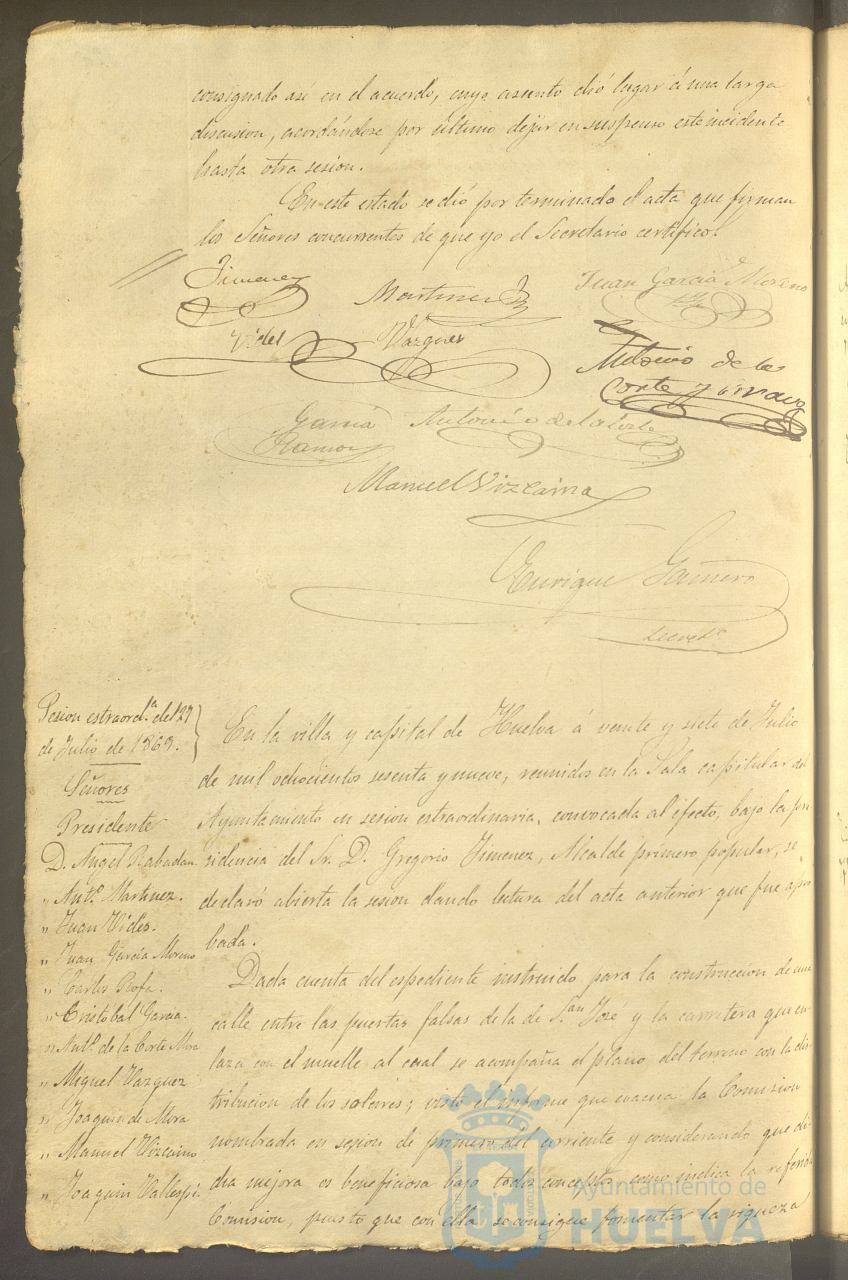 consignado asi en el acuerdo, cuyo asunto dió lugar á una larga
discusion, acordándose por último dejar en suspenso este incidente
hasta otra sesion.
En este estado se dió por terminado el acta que firman
los Señores concurrentes de que yo el Secretario certifico.
Jimenez
Martinez
Juan Garcia Moreno
Vides
Vazquez
Antonio de la
Corte y
Garcia
Ramon
Antonio de la Corte
Manuel Vizcaino
Enrique
Secret.º
Sesion estraord.ª del 27
de Julio de 1869.
Señores
Presidente
D. Angel Rabadan
" Ant.º Martinez.
" Juan Vides.
" Juan Garcia Moreno
" Carlos Rofa.
" Cristóbal Garcia.
" Ant.º de la Corte Mora
" Miguel Vazquez
" Joaquin de Mora
" Manuel Vizcaino
" Joaquin Vallespi
En la villa y capital de Huelva á veinte y siete de Julio
de mil ochocientos sesenta y nueve, reunidos en la Sala capitular del
Ayuntamiento en sesion estraordinaria, convocada al efecto, bajo la pre
sidencia del Sr. D. Gregorio Jimenez, Alcalde primero popular, se
declaró abierta la sesion dando lectura del acta anterior que fue apro
bada.
Dada cuenta del espediente instruido para la construccion de una
calle entre las puertas falsas de la de S.an José y la carretera que en
laza con el muelle al cual se acompaña el plano del terreno con la dis
tribucion de los solares; visto el informe que evacua la Comision
nombrada en sesion de primero del corriente y considerando que di
cha mejora es beneficiosa bajo todos conceptos como indica la referida
Comision, puesto que con ella se consigue fomentar la riqueza
Ayuntamiento de
HUELVA